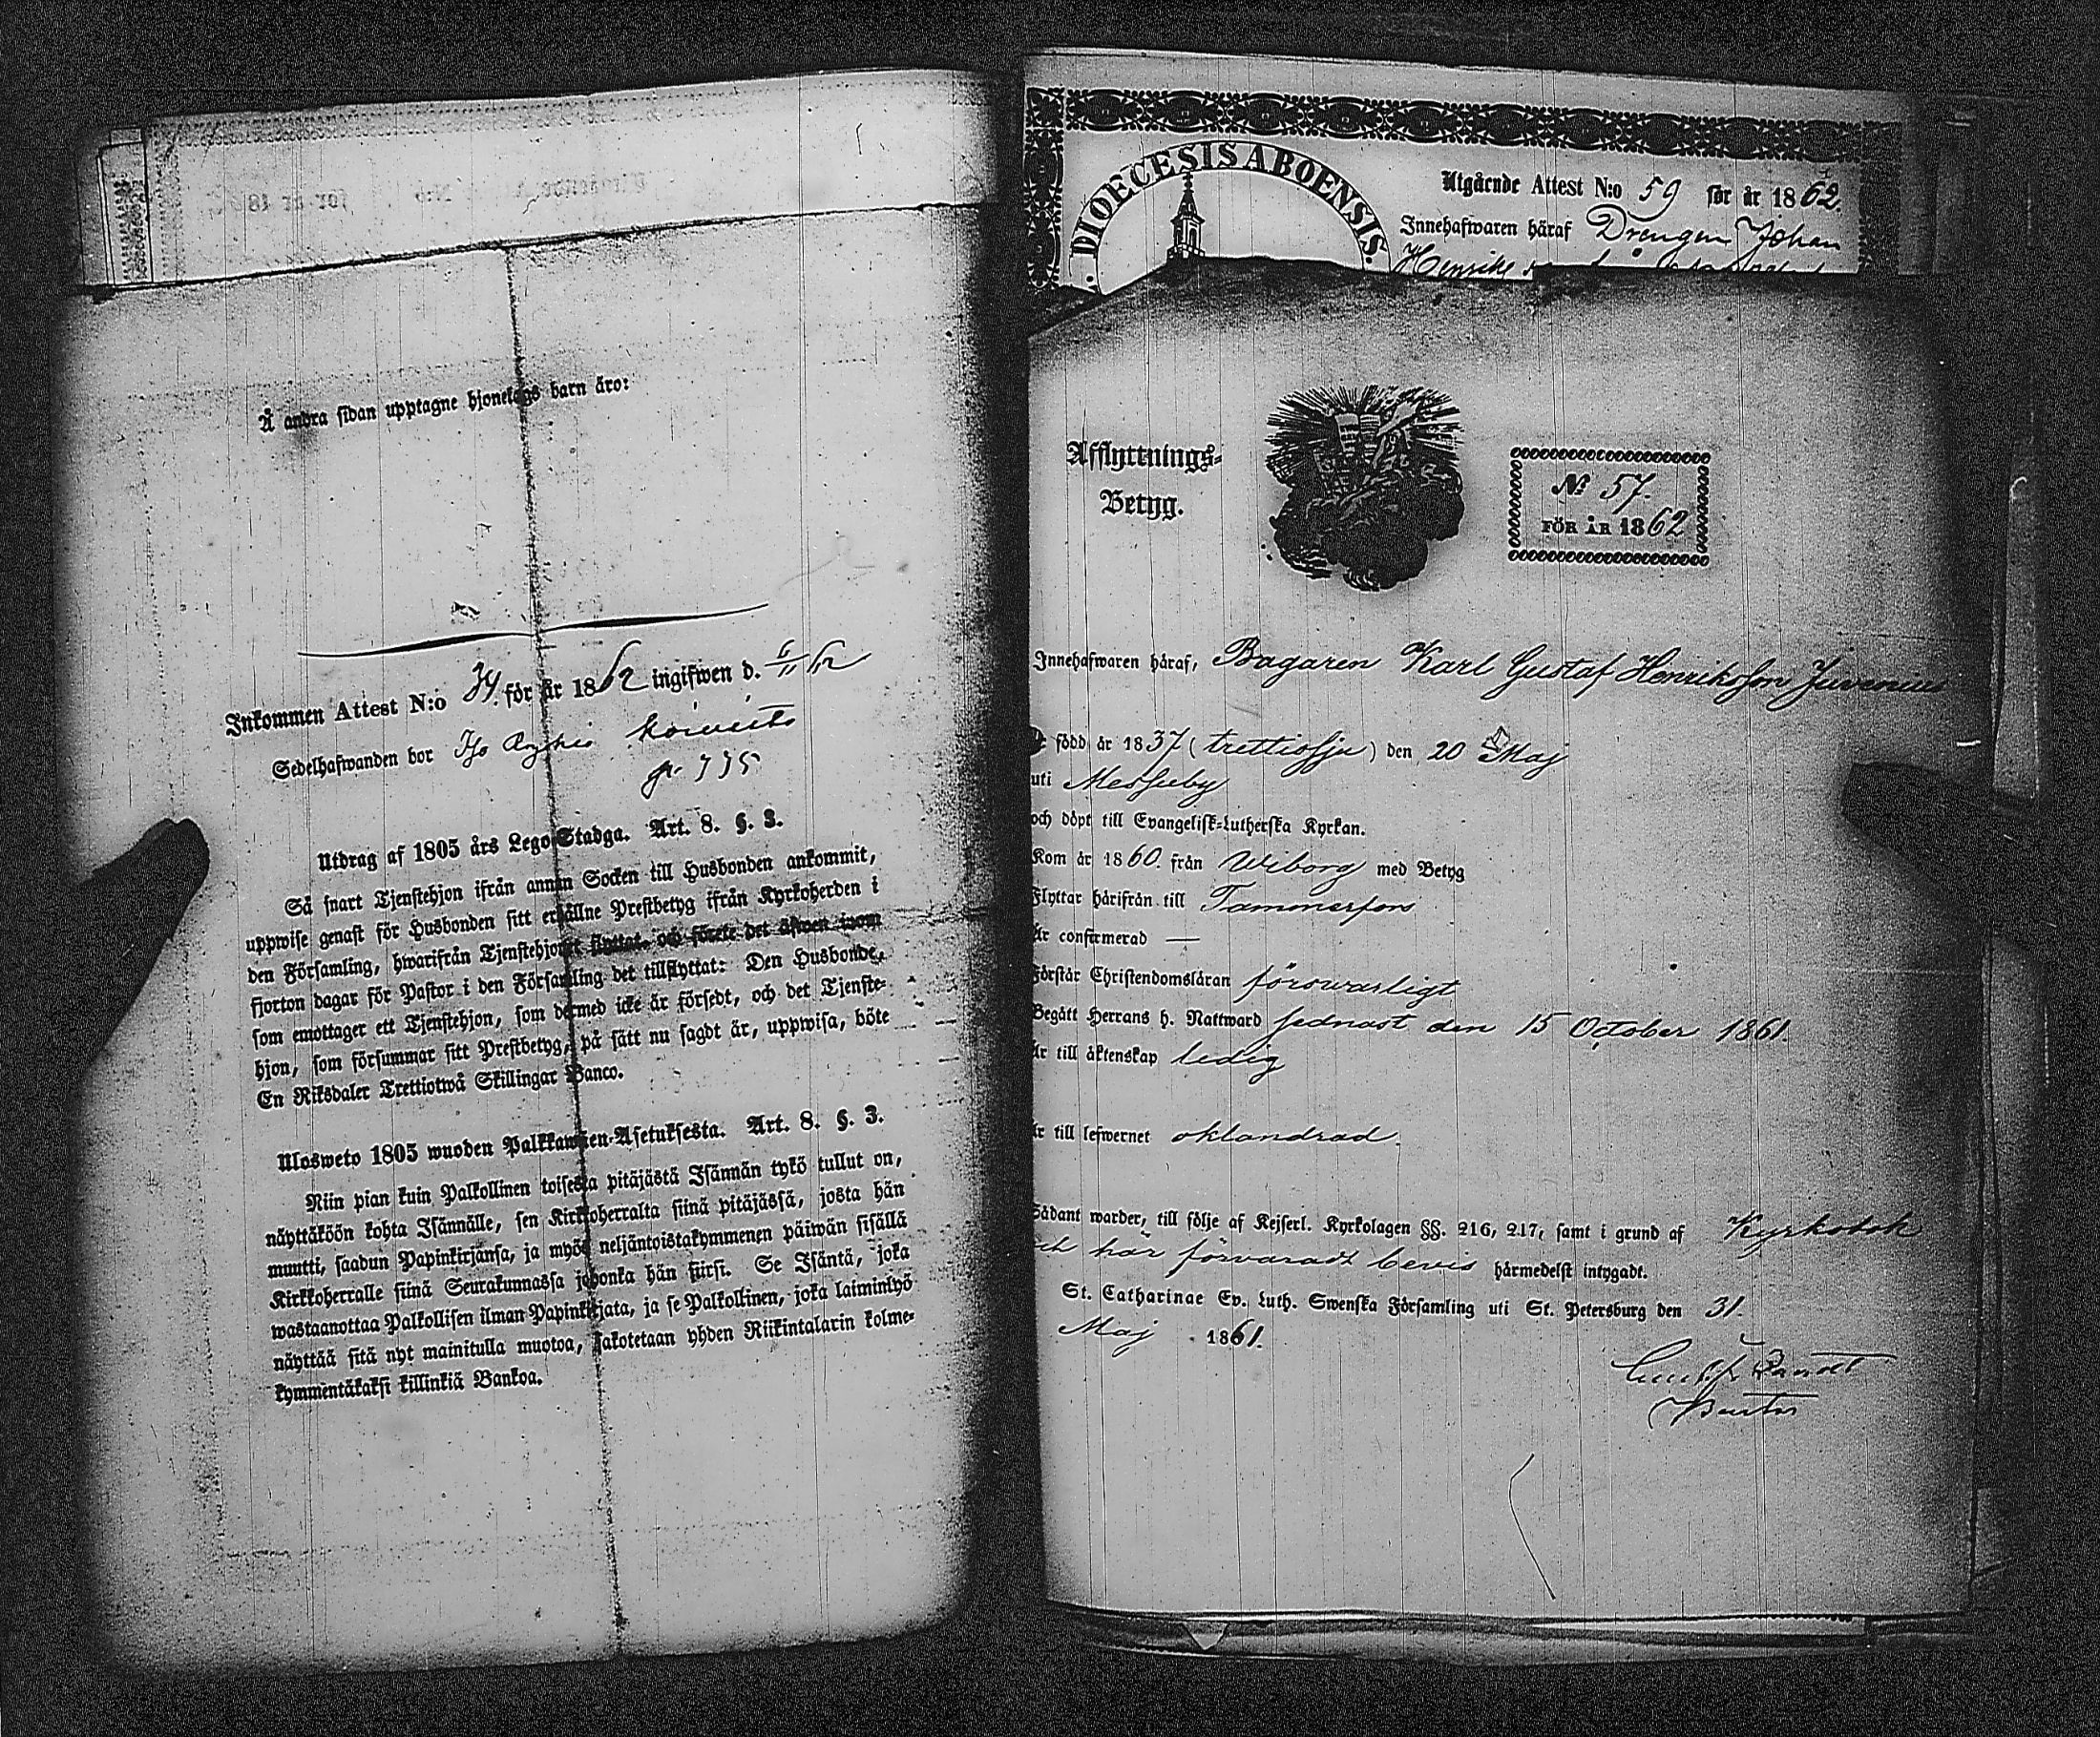 Å andra sidan upptagne hjonelags barn äro:
Inkommen Attest N:o 34. för år 1862 ingifwen d. 6/11 62
Sedelhafwanden bor Iso
p. 735
Utdrag af 1805 års Lego-Stadga. Art. 8. §. 3.
Så snart Tjenstehjon ifrån annan Socken till Husbonden ankommit,
uppwise genast för Husbonden sitt erhållne Prestbetyg ifrån Kyrkoherden i
den Församling, hwarifrån Tjenstehjonet flyttat, och förete det äfwen inom
fjorton dagar för Pastor i den Församling det tillflyttat: Den Husbonde,
som emottager ett Tjenstehjon, som dermed icke är försedt, och det Tjenste-
hjon, som försummar sitt Prestbetyg, på sätt nu sagdt är, uppwisa, böte
En Riksdaler Trettiotwå Skillingar Banco.
Ulosweto 1805 wuoden Palkkawäen-Asetuksesta. Art. 8. §. 3.
Niin pian kuin Palkollinen toisesta pitäjästä Isännän tykö tullut on,
näyttäköön kohta Isännälle, sen Kirkkoherralta siinä pitäjässä, josta hän
muutti, saadun Papinkirjansa, ja myös neljäntoistakymmenen päiwän sisällä
Kirkkoherralle siinä Seurakunnassa johonka hän siirsi. Se Isäntä, joka
wastaanottaa Palkollisen ilman Papinkirjata, ja se Palkollinen, joka laiminlyö
näyttää sitä nyt mainitulla muotoa, sakotetaan yhden Riikintalarin kolme-
kymmentäkaksi killinkiä Bankoa.
DIOECESIS ABOENSIS.
Utgående Attest N:o 59 för år 1862.
Innehafwaren häraf Drängen Johan
Henrik
Afflyttnings-
Betyg.
No 57.
FÖR ÅR 1862
Innehafwaren häraf, Bagaren Karl Gustaf Henriksson Juvenius
född år 1837 (trettiosju) den 20 Maj
uti Messuby
och döpt till Evangelisk-Lutherska Kyrkan.
Kom år 1860. från Wiborg med Betyg
Flyttar härifrån till Tammerfors
Är confirmerad —
Förstår Christendomsläran försvarligt
Begått Herrans h. Nattward sednast den 15 October 1861.
Är till äktenskap ledig
Är till lefwernet oklandrad.
Sådant warder, till följe af Kejserl. Kyrkolagen §§. 216, 217, samt i grund af Kyrkobok
och här förvaradt bevis härmedelst intygadt.
St. Catharinae Ev. Luth. Swenska Församling uti St. Petersburg den 31.
Maj 1861.
Pastor